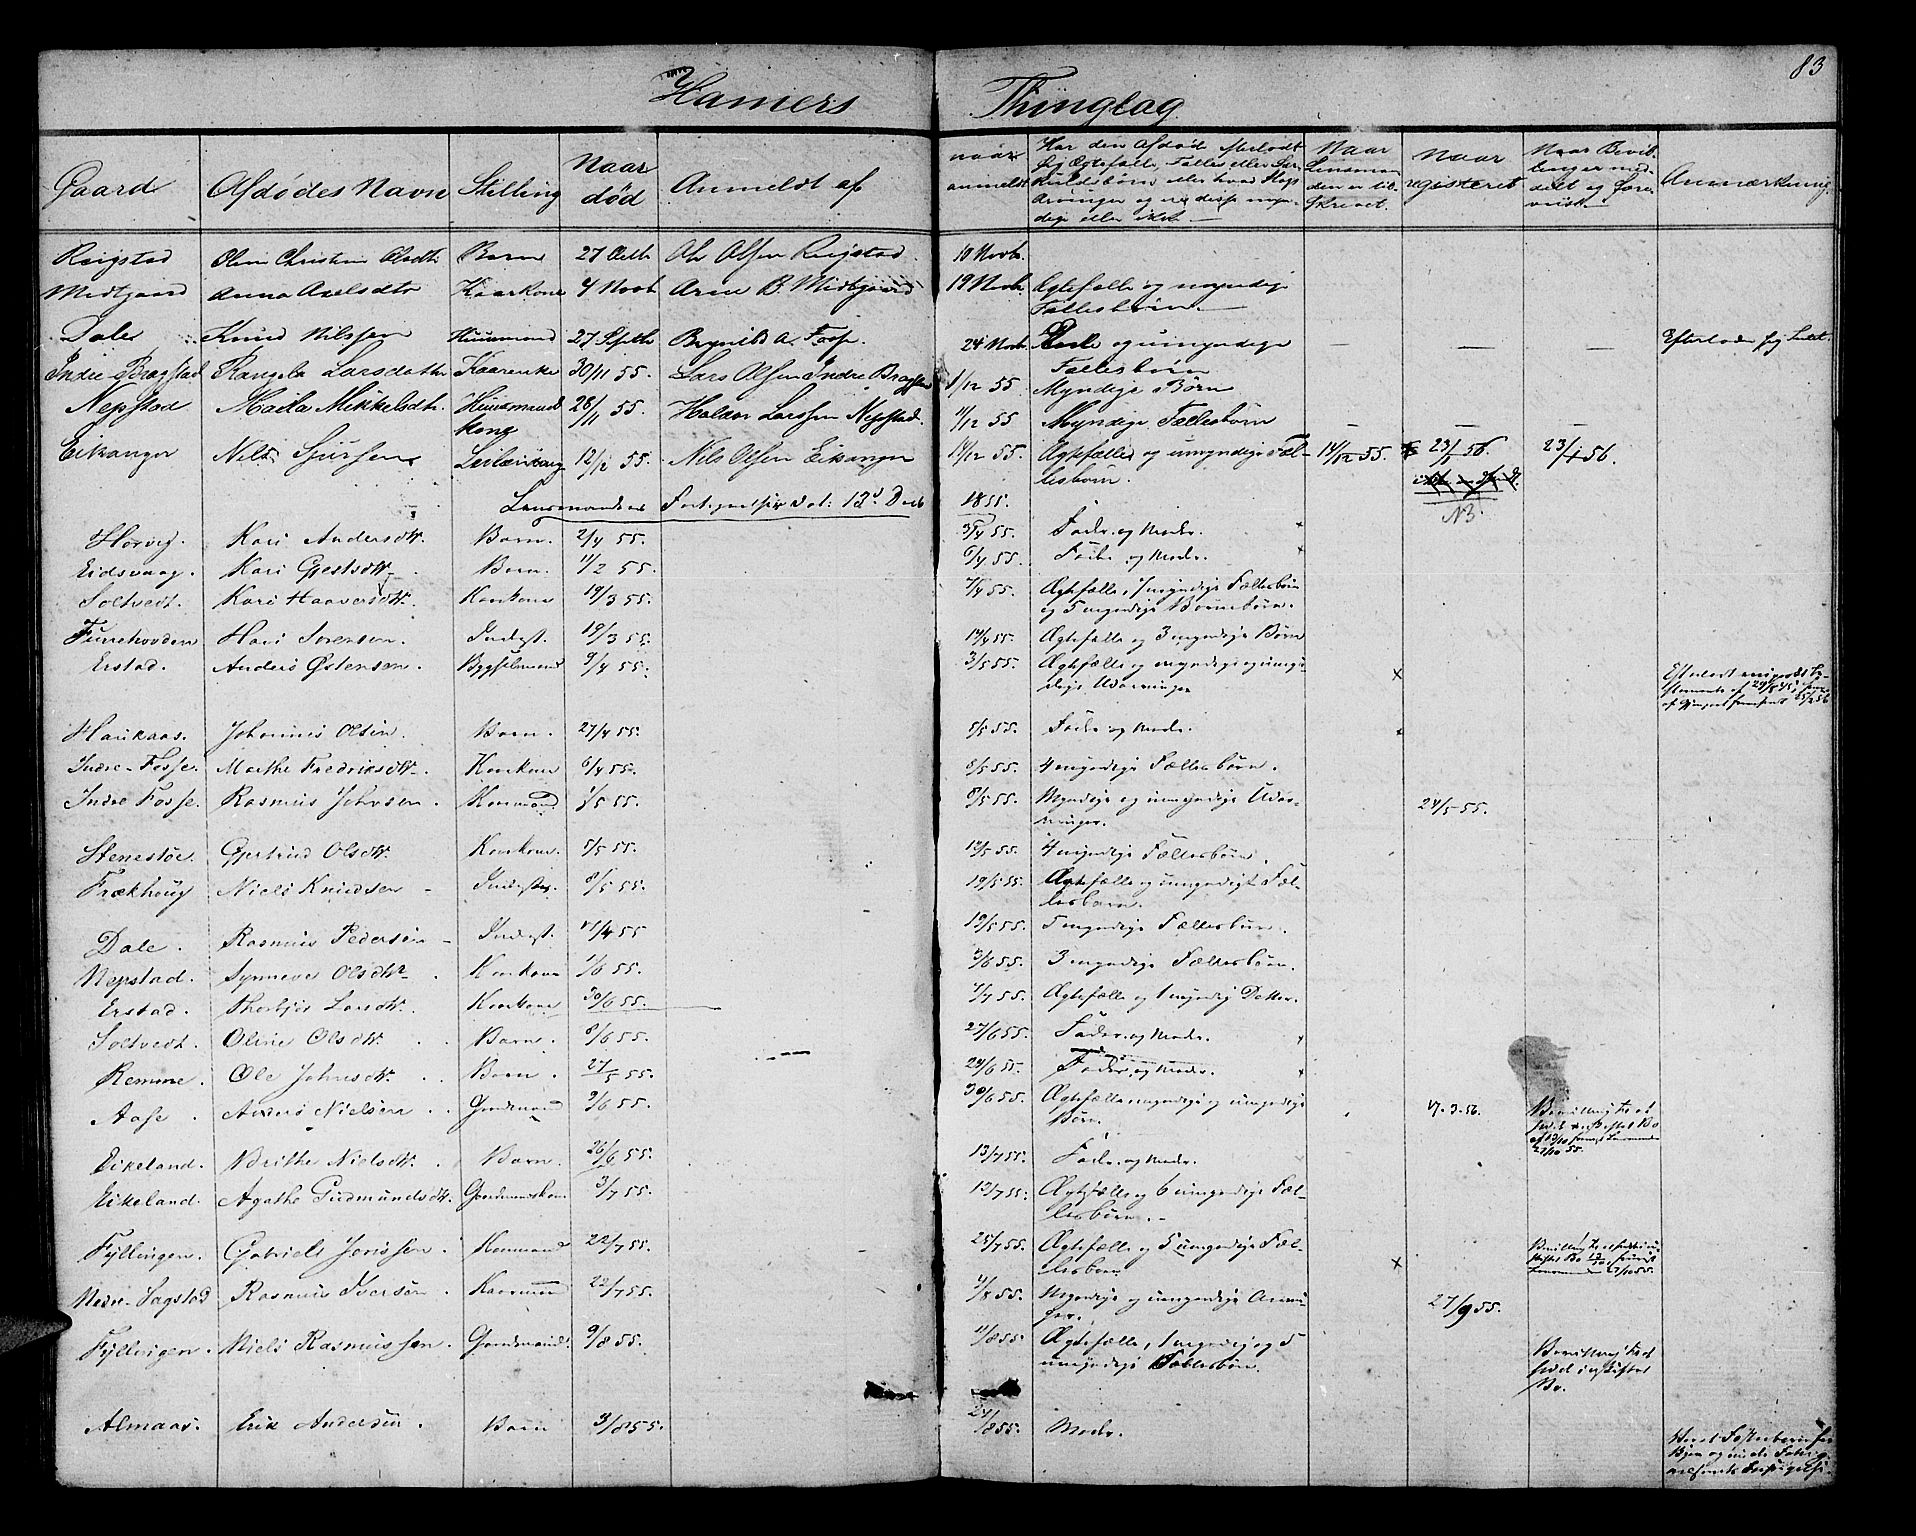 83
Hamers Thinglag
Gaard Afdødes Navn Stilling Naar død Anmeldt af naar anmeldt Har den Afdød efterladt sig Ægtefælle, Fælles eller Særkuldsbørn eller hvad Slags Arvinger og er disse myndige eller ikke Naar Lensmanden er tilskrevet Naar registeret Naar Bevillinger meddelt og forevist Anmærkning
Reigstad Oline Christine Olsdtr Barn 27 Octb Ole Olsen Reigstad 10 Novb.
Midtgaard Anna Axelsdtr Kaarkone 4 Novb Arne B. Midtgaard 19 Novb. Ægtefælle og myndige
Fællesbørn.
Dale Knud Nilssen Huusmand 27 Septb Brynild A. Fosse 24 Novb. Enke og umyndige — — — Efterlader sig Intet.
Fællesbørn
Indre Bragstad Rangela Larsdatter Kaarenke 30/11 55. Lars Olsen Indre Bragstad 1/12 55 Myndige Børn
Nepstad Madla Mikkelsdtr. Huusmands 28/11 55. Haldor Larssen Nepstad. 11/12 55 Myndige Fællesbørn — — —
kone
Eikanger Nils Sjursen Leilænding 12/12 55. Nils Olsen Eikanger 14/12 55. Ægtefælle og umyndige Fæl- 14/12 55. 23/1 56. 23/1 56.
lesbørn.
Lensmandens Fortegnelser dat: 12d Decb 1855.
NB
Horvig. Kari Andersdtr. Barn. 2/4 55. 3/4 55. Fader og Moder.
Eidsvaag. Kari Gjestsdtr. Barn. 11/2 55. 6/4 55. Fader og Moder.
Soltvedt. Kari Haaversdtr. Konekone 19/3 55. 7/4 55. Ægtefælle, 1 myndige Fællesbørn
og 5 myndige Børnebørn.
Furrehovden Hans Sorensen. Inderst. 19/3 55. 14/4 55. Ægtefælle og 3 myndige Børn
Erstad. Anders Østensen. Bygselmand 9/4 55. 3/5 55. Ægtefælle og myndige og umyn- x
dige Udarvinger
Haukaas. Johannes Olsen. Barn. 27/4 55. 5/5 55. Fader og Moder. x
Indre-Fosse. Marthe Fredriksdtr. Konekone 6/4 55. 8/5 55. 4 myndige Fællesbørn.
Indre Fosse. Rasmus Johnsen. Konemand 1/5 55. 8/5 55. Myndige og umyndige Udar- 24/5 55.
vinger.
Stenestøe. Gjertrud Olsdtr. Konekone. 5/5 55. 12/5 55. 4 myndige Fællesbørn.
Frækhoug Niels Knudsen Inderst. 8/5 55. 19/5 55. Ægtefælle og umyndigt Fæl-
lesbarn.
Dale. Rasmus Pedersen Inderst. 21/4 55 19/5 55. 5 myndige Fællesbørn.
Nepstad. Synneve Olsdtr. Konekone 1/6 55. 2/6 55. 3 myndige Fællesbørn.
Erstad. Thorbjør Larsdtr. Konekone 30/6 55. 7/7 55. Ægtefælle og 1 myndig Datter.
Soltvedt. Oline Olsdtr. Barn. 8/6 55. 27/6 55. Fader og Moder.
Remme. Ole Johnsdtr. Barn. 27/5 55. 28/6 55. Fader og Moder.
Aase. Anders Nielsen. Gaardmand 9/6 55. 30/6 55. Ægtefælle myndige og umyndige 17-3-56.
Børn.
Eikeland. Brithe Nielsdtr. Barn. 26/6 55. 13/7 55. Fader og Moder.
Eikeland. Agathe Gudmundsdtr. Gaardmandskone 3/7 55. 13/7 55. Ægtefælle og 6 umyndige Fæl-
lesbørn.
Fyllingen. Gabriels Jonssen. Konemand 22/7 55. 25/7 55. Ægtefælle og 5 umyndige Fæl- x
lesbørn.
Nedre-Sagstad Rasmus Iversen. Kaarmand 22/7 55. 4/8 55. Myndige og umyndige Arvin- 27/9 55.
ger.
Fyllingen. Niels Rasmussen. Gaardmand. 9/8 55. 11/8 55. Ægtefælle, 1 myndig og 5
umyndige Fællesbørn.
Almaas. Erik Andersen. Barn 3/8 55. 24/8 55. Moder.